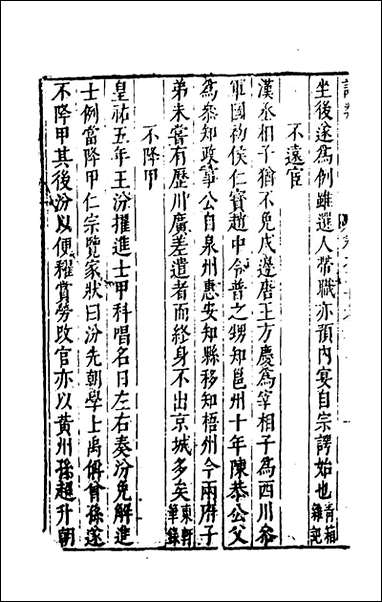 坐後遂爲例雖選人帶職亦預內宴自宗諤始也青箱雜記
不遠官
漢丞相子猶不免戍邊唐王方慶爲宰相子爲西川參
軍國初侯仁寶趙中令普之甥知邕州十年陳恭公父
爲參知政事公自泉州惠安知縣移知梧州今兩府子
弟未嘗有歷川廣差遣者而終身不出京城多矣東軒筆錄
不降甲
皇祐五年王汾擢進士甲科唱名日左右奏汾免解進
士例當降甲仁宗覽家狀曰汾先朝學士禹偁曾孫遂
不降甲其後汾以便糴賞勞改官亦以黃州孫超升朝